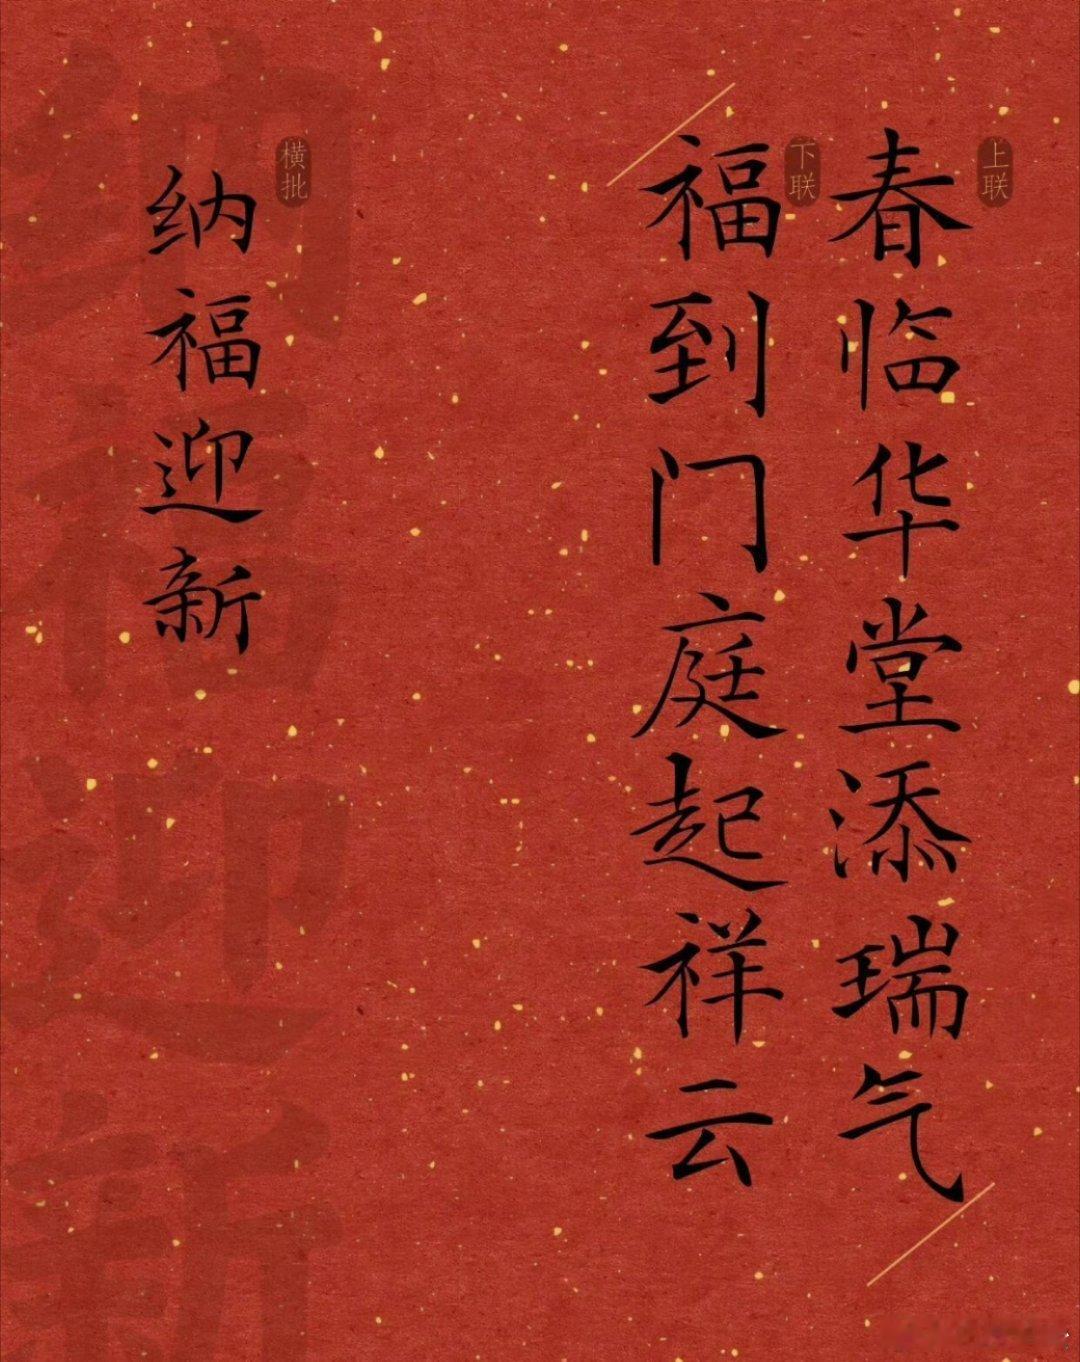 上联
春临华堂添瑞气
下联
福到门庭起祥云
横批
纳福迎新
纳福迎新